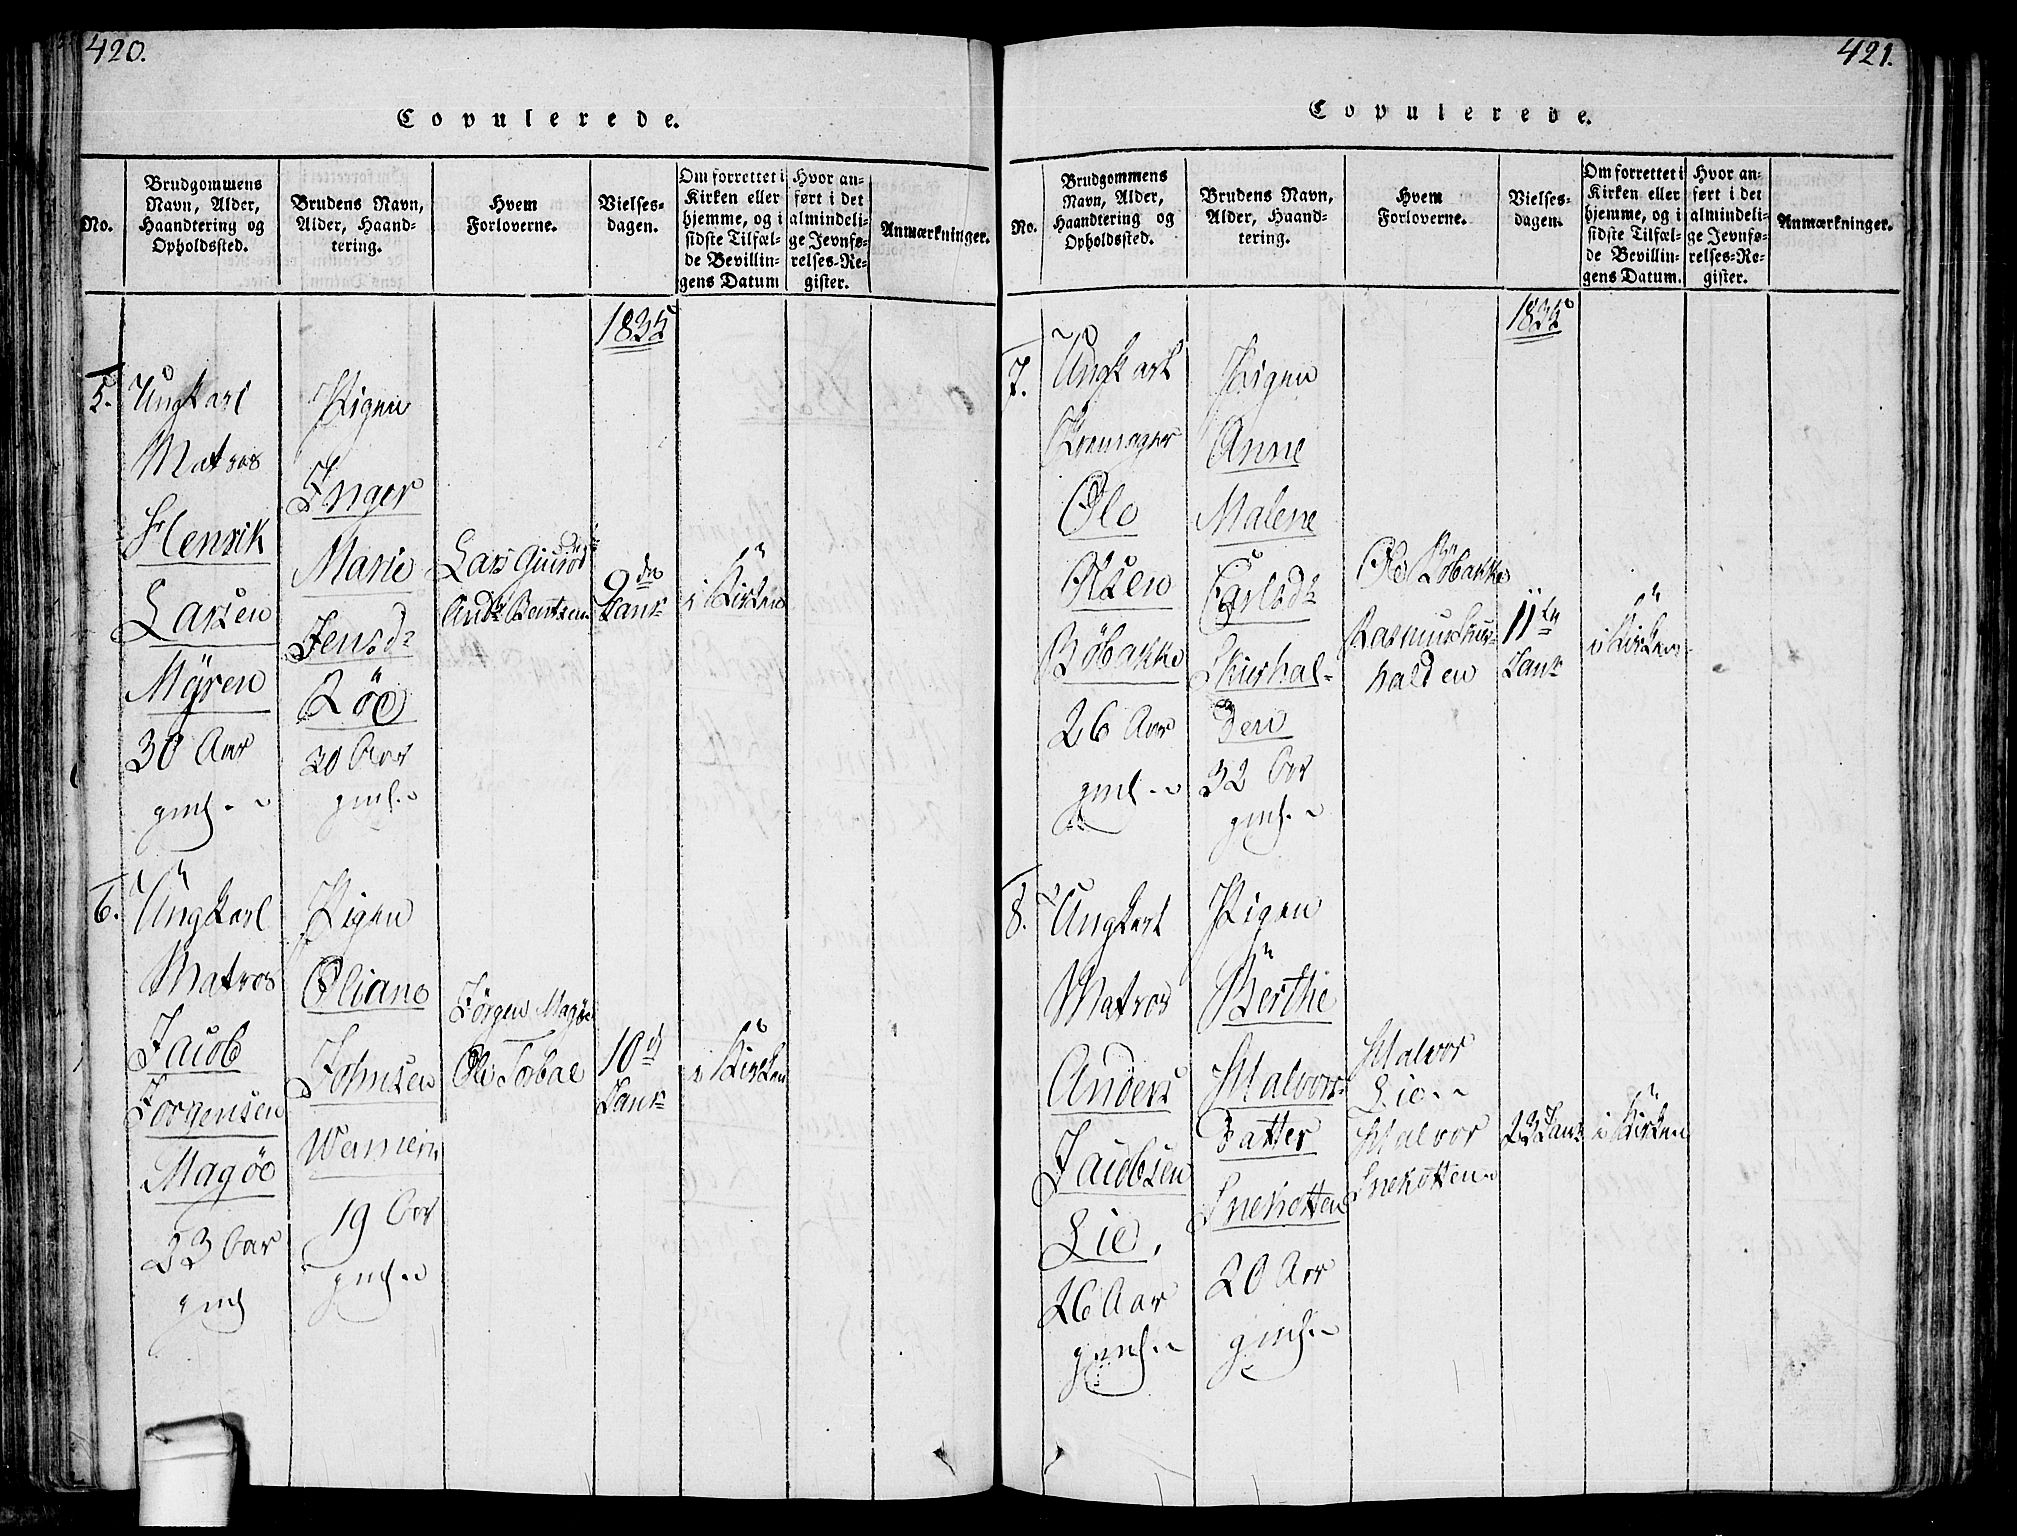 420.
Copulerede.
No.
Brudgommens
Navn, Alder,
Haandtering og
Opholdssted.
Brudens Navn,
Alder, Haand-
tering.
Hvem
Forloverne.
Vielses-
dagen.
Om forrettet i
Kirken eller
hjemme, og i
sidste Tilfæl-
de Bevillin-
gens Datum
Hvor an-
ført i det
almindeli-
ge Jevnfø-
relses-Re-
gister.
Anmærkninger.
1835
5.
Ungkarl
Matros
Henrik
Larsen
Myren
30 Aar
Pigen
Inger
Marie
Jensd
Röe
30 Aar
Lars
Andr Bentsen
9de
Janr
i Kirken
6.
Ungkarl
Matros
Jacob
Jörgensen
Magöe
23 Aar
Pigen
Oliane
Johnsen
19 Aar
Jörgen Magöe
Ole Torbal
10d
Janr
i Kirken
421.
Copulerede.
No.
Brudgommens
Navn, Alder,
Haandtering og
Opholdssted.
Brudens Navn,
Alder, Haand-
tering.
Hvem
Forloverne.
Vielses-
dagen.
Om forrettet i
Kirken eller
hjemme, og i
sidste Tilfæl-
de Bevillin-
gens Datum.
Hvor an-
ført i det
almindeli-
ge Jevnfø-
relses-Re-
gister.
Anmærkninger.
1835
7.
Ungkarl
Ole
Olsen
Böbakke
26 Aar
Pigen
Anne
Malene
Carlsd
Skurhal-
den
32 Aar
Ole Böbakke
Rasmus Skur-
halden
11te
Janr
i Kirken
8.
Ungkarl
Matros
Anders
Jacobsen
Lie.
26 Aar
Pigen
Berthe
Halvors-
Datter
Snekotten
20 Aar
Halvor
Lie
Halvor
Snekotten
23 Janr
i Kirken